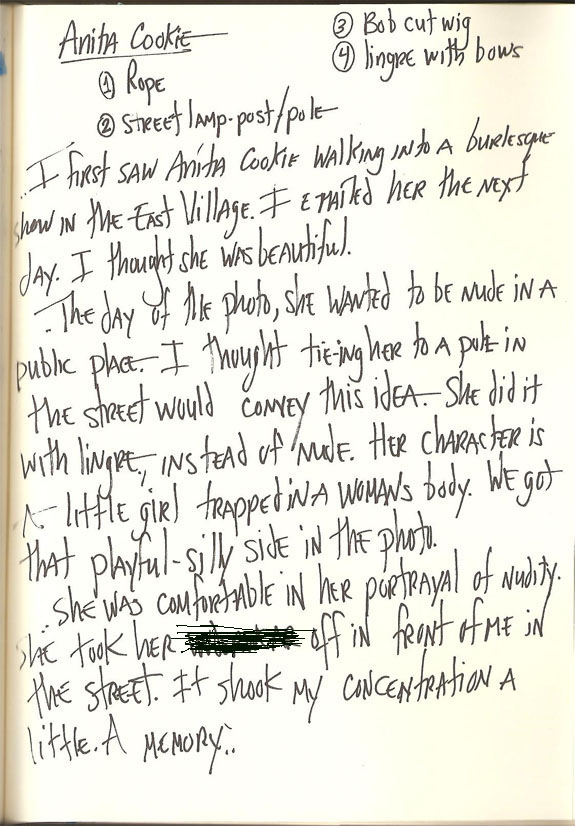 Anita Cookie
① Rope
② Street lamp-post/pole
③ Bob cut wig
④ lingre with bows
I first saw Anita Cookie walking into a burlesque
show in the East Village. I emailed her the next
day. I thought she was beautiful.
The day of the photo, she wanted to be nude in a
public place. I thought tie-ing her to a pole in
the street would convey this idea. She did it
with lingre, instead of nude. Her character is
A little girl trapped in a woman's body. We got
that playful-silly side in the photo.
She was comfortable in her portrayal of nudity.
She took her off in front of me in
the street. It shook my concentration a
little. A memory..